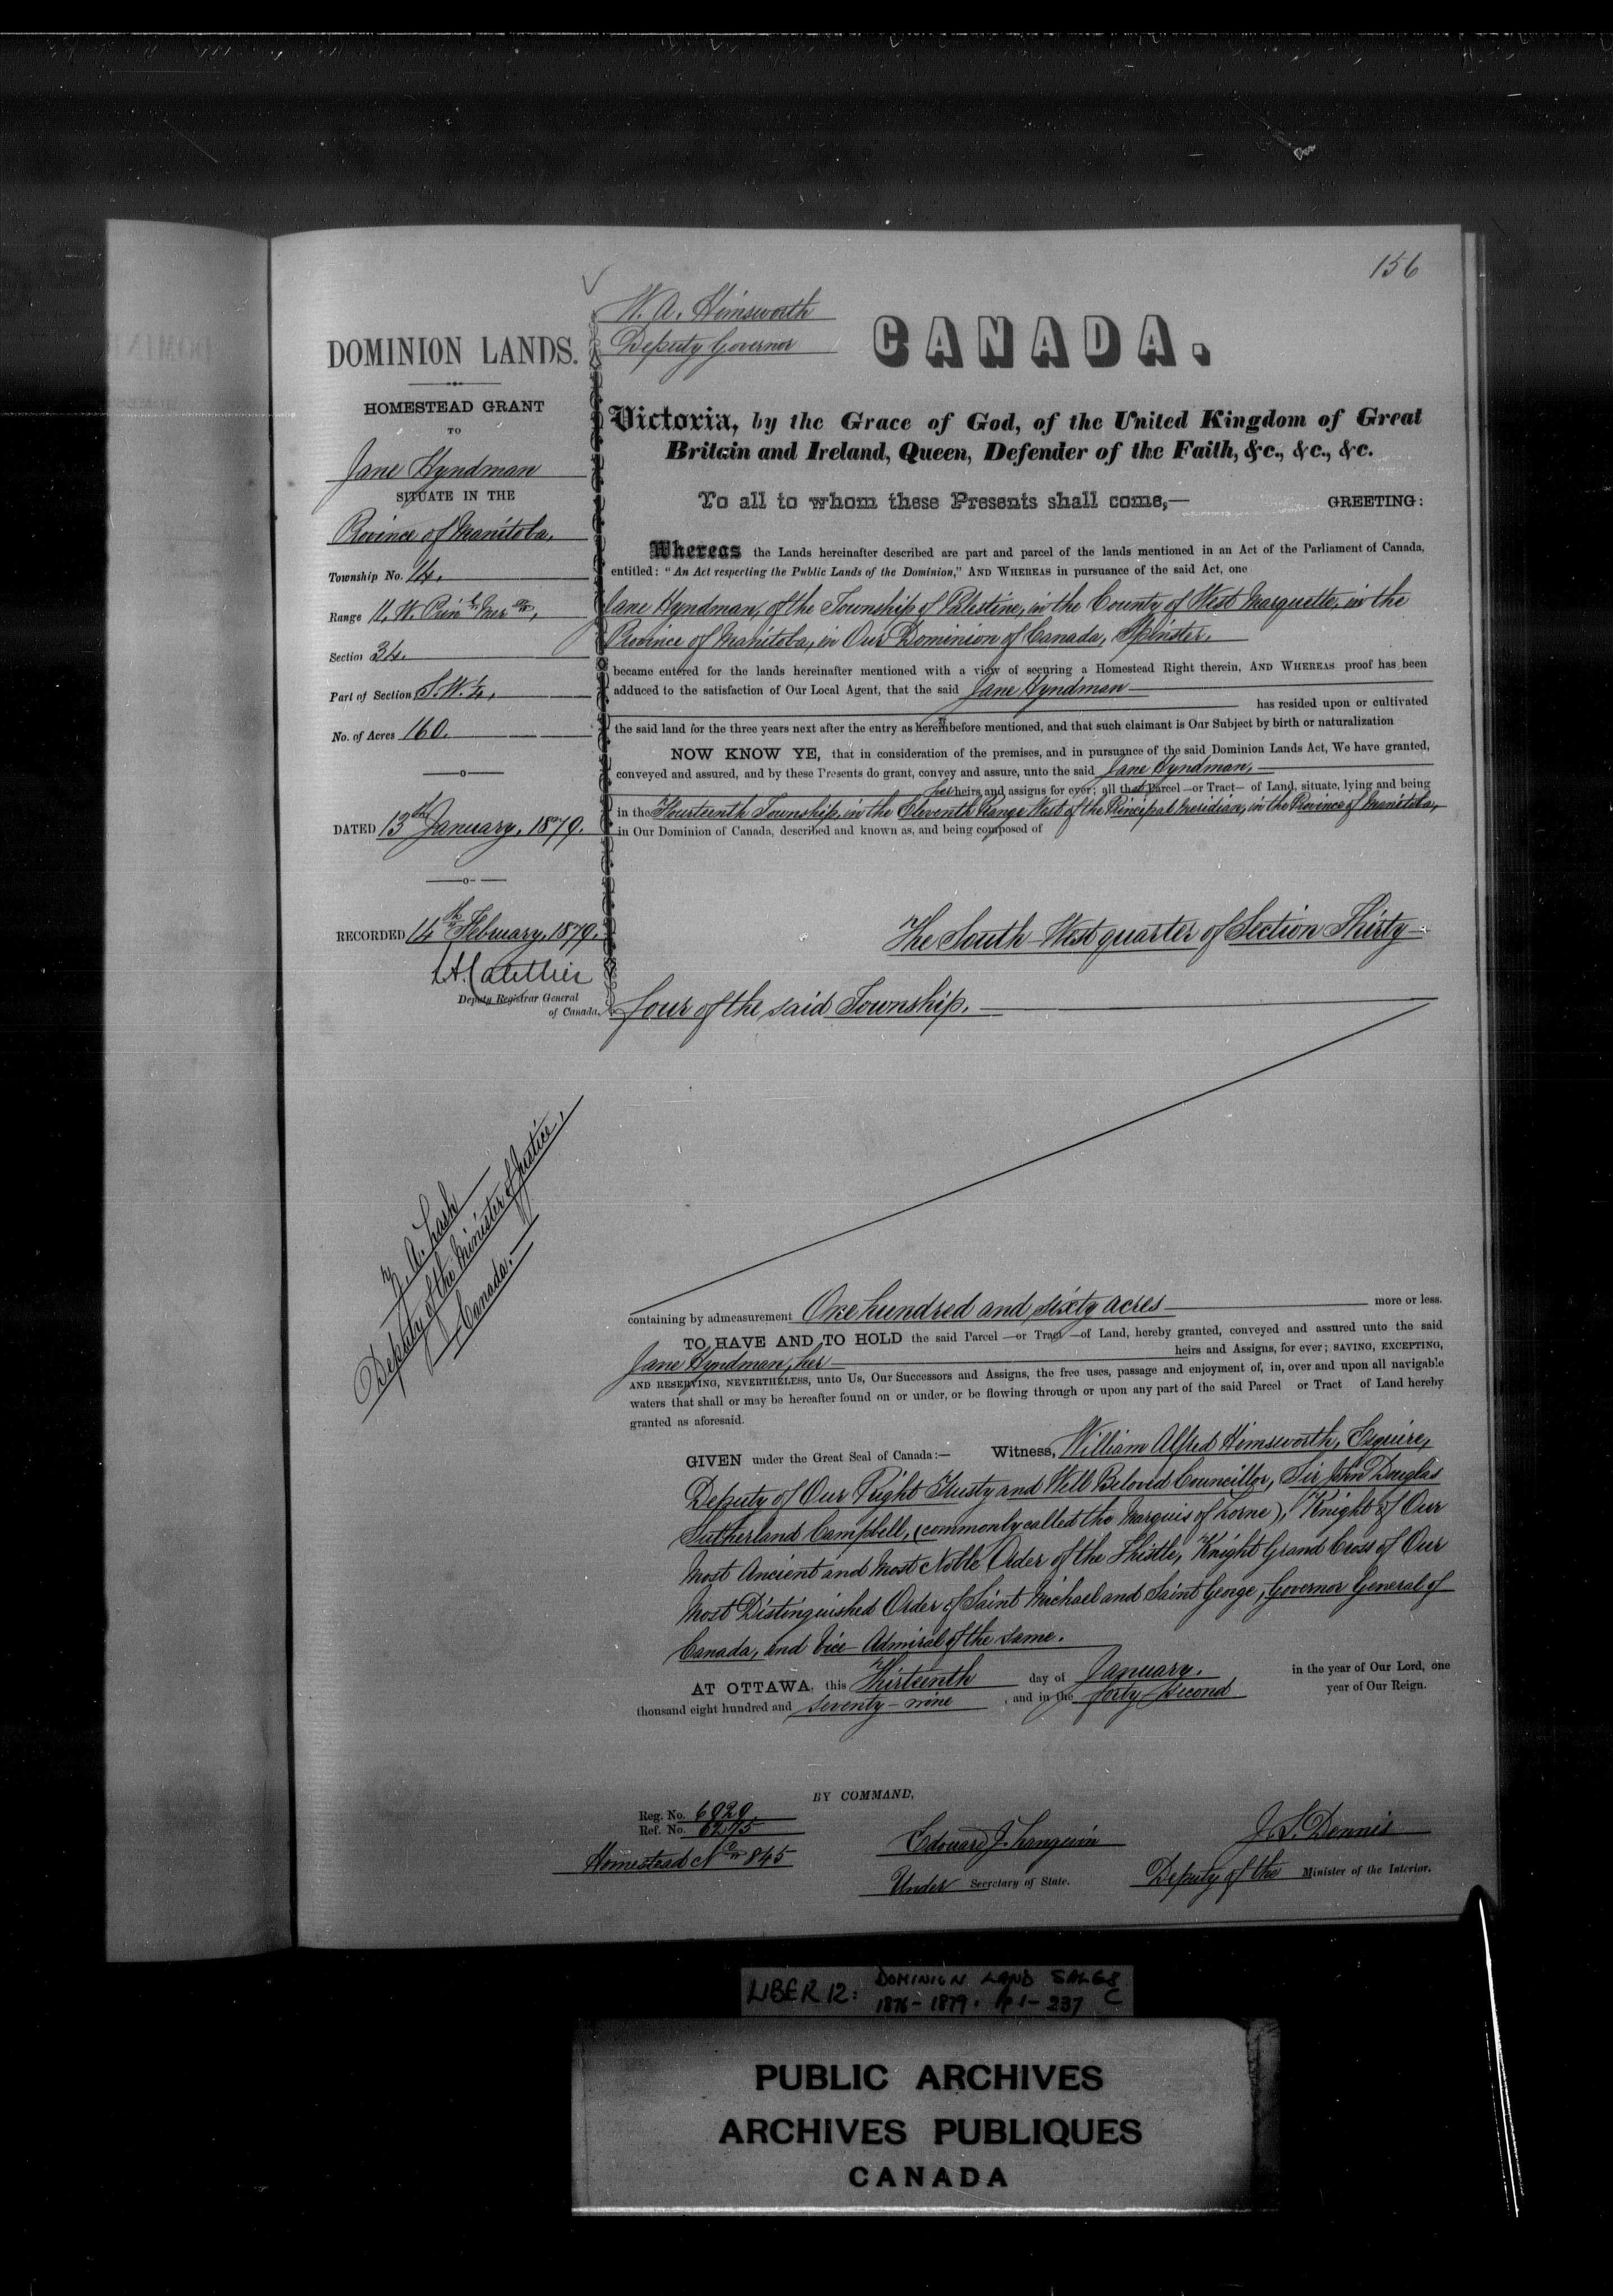 156
W. A. Himsworth
Deputy Governor
CANADA.
DOMINION LANDS.
HOMESTEAD GRANT
TO
Jane Hyndman
SITUATE IN THE
Province of Manitoba,
Township No. 14,
Range 11, W. Prin l Mer an,
Section 34.
Part of Section S. W. ¼,
No. of Acres 160.
DATED 13th January, 1879.
RECORDED 14th February, 1879.
Deputy Registrar General
of Canada.
Z. A. Lash
Deputy of the Minister of Justice,
Canada.
Victoria, by the Grace of God, of the United Kingdom of Great
Britain and Ireland, Queen, Defender of the Faith, &c., &c., &c.
To all to whom these Presents shall come,— GREETING:
Whereas the Lands hereinafter described are part and parcel of the lands mentioned in an Act of the Parliament of Canada,
entitled: "An Act respecting the Public Lands of the Dominion," AND WHEREAS in pursuance of the said Act, one
Jane Hyndman, of the Township of Palestine, in the County of West Marquette, in the
Province of Manitoba, in Our Dominion of Canada, Spinster,
became entered for the lands hereinafter mentioned with a view of securing a Homestead Right therein, AND WHEREAS proof has been
adduced to the satisfaction of Our Local Agent, that the said Jane Hyndman
has resided upon or cultivated
the said land for the three years next after the entry as hereinbefore mentioned, and that such claimant is Our Subject by birth or naturalization
NOW KNOW YE, that in consideration of the premises, and in pursuance of the said Dominion Lands Act, We have granted,
conveyed and assured, and by these Presents do grant, convey and assure, unto the said Jane Hyndman,
her heirs and assigns for ever; all that Parcel —or Tract— of Land, situate, lying and being
in the Fourteenth Township, in the Eleventh Range West of the Principal Meridian, in the Province of Manitoba,
in Our Dominion of Canada, described and known as, and being composed of
The South West quarter of Section Thirty
four of the said Township.
containing by admeasurement One hundred and sixty acres more or less.
TO HAVE AND TO HOLD the said Parcel —or Tract —of Land, hereby granted, conveyed and assured unto the said
Jane Hyndman, her heirs and Assigns, for ever; SAVING, EXCEPTING,
AND RESERVING, NEVERTHELESS, unto Us, Our Successors and Assigns, the free uses, passage and enjoyment of, in, over and upon all navigable
waters that shall or may be hereafter found on or under, or be flowing through or upon any part of the said Parcel or Tract of Land hereby
granted as aforesaid.
GIVEN under the Great Seal of Canada:— Witness, William Alfred Himsworth, Esquire,
Deputy of Our Right Trusty and Well Beloved Councillor, Sir John Douglas
Sutherland Campbell, (commonly called the Marquis of Lorne), Knight of Our
Most Ancient and Most Noble Order of the Thistle, Knight Grand Cross of Our
Most Distinguished Order of Saint Michael and Saint George, Governor General of
Canada, and Vice Admiral of the same.
AT OTTAWA, this Thirteenth day of January. in the year of Our Lord, one
thousand eight hundred and seventy-nine, and in the forty second year of Our Reign.
BY COMMAND,
Reg. No. 6929
Ref. No. 6275
Homestead No 845
Edouard J. Langevin
Under Secretary of State.
J. S. Dennis
Deputy of the Minister of the Interior.
LIBER 12: DOMINION LAND SALES
1876-1879. pp 1-237 C
PUBLIC ARCHIVES
ARCHIVES PUBLIQUES
CANADA